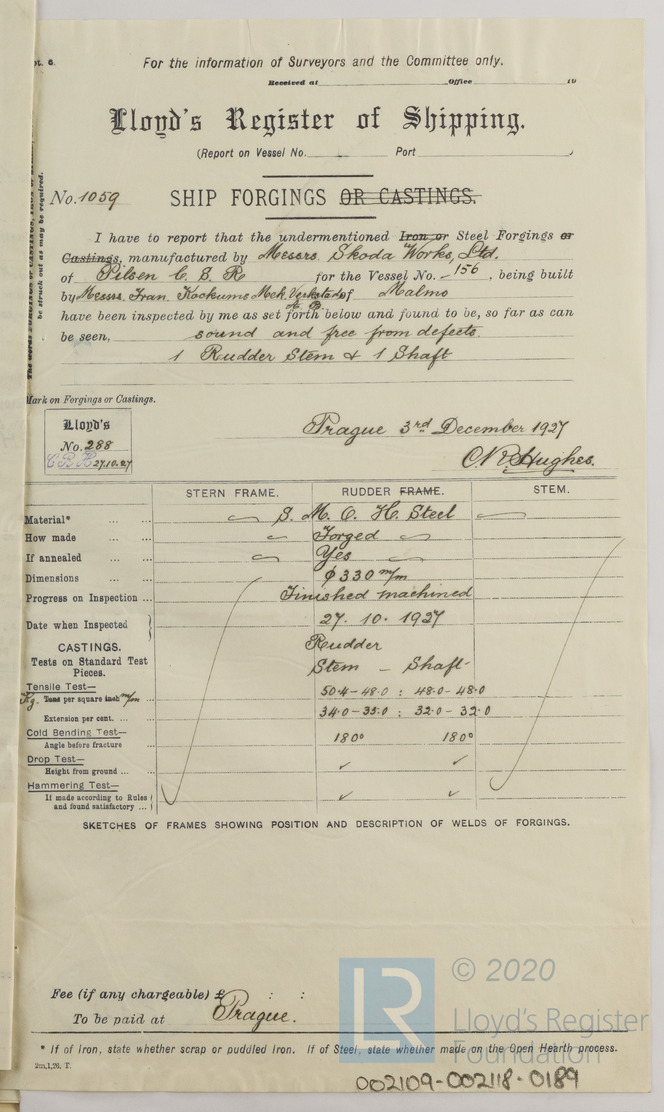 pt. 6.
For the information of Surveyors and the Committee only.
Received at Office 19
Lloyd's Register of Shipping.
(Report on Vessel No. Port
No. 1059 SHIP FORGINGS OR CASTINGS.
be struck out as may be required.
I have to report that the undermentioned Iron or Steel Forgings or
Castings, manufactured by Messrs. Skoda Works, Ltd.
of Pilsen C. S. R for the Vessel No. 156, being built
by Messrs. Fran. Kockums Mek. Verkstads of Malmo
A. B.
have been inspected by me as set forth below and found to be, so far as can
be seen, sound and free from defects.
1 Rudder Stem & 1 Shaft
Mark on Forgings or Castings.
Lloyd's
No. 288
27.10.27
Prague 3rd December 1927
Hughes.
STERN FRAME. RUDDER FRAME. STEM.
Material* ... ... S. M. O. H. Steel
How made ... ... Forged
If annealed ... ... Yes
Dimensions ... ... φ 330 m/m
Progress on Inspection ... Finished machined
Date when Inspected } 27. 10. 1927
CASTINGS. Rudder
Tests on Standard Test Pieces. Stem - Shaft
Tensile Test—
Kg. Tons per square inch m/m 50.4-48.0 : 48.0-48.0
Extension per cent. ... ... 34.0-35.0 : 32.0-32.0
Cold Bending Test—
Angle before fracture ... 180° 180°
Drop Test—
Height from ground ... ... ✓ ✓
Hammering Test—
If made according to Rules
and found satisfactory ... ✓ ✓
SKETCHES OF FRAMES SHOWING POSITION AND DESCRIPTION OF WELDS OF FORGINGS.
Fee (if any chargeable) £ : :
To be paid at Prague.
* If of Iron, state whether scrap or puddled Iron. If of Steel, state whether made on the Open Hearth process.
2m,1,26. T.
© 2020
LR
Lloyd's Register
Foundation
002109-002118-0189